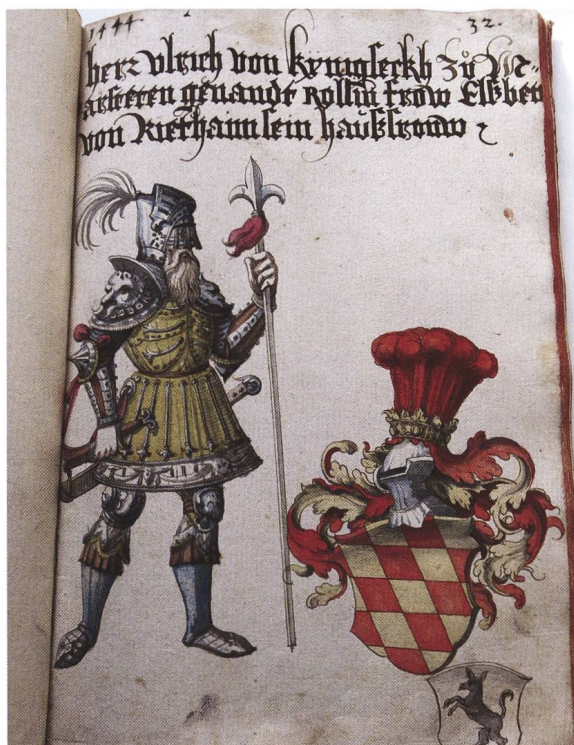 1444.
32.
herr Ulrich von kynigseckh zů M-
arsteten genandt Rollin frow Elsbet
von Riethaim sein haußfrouw